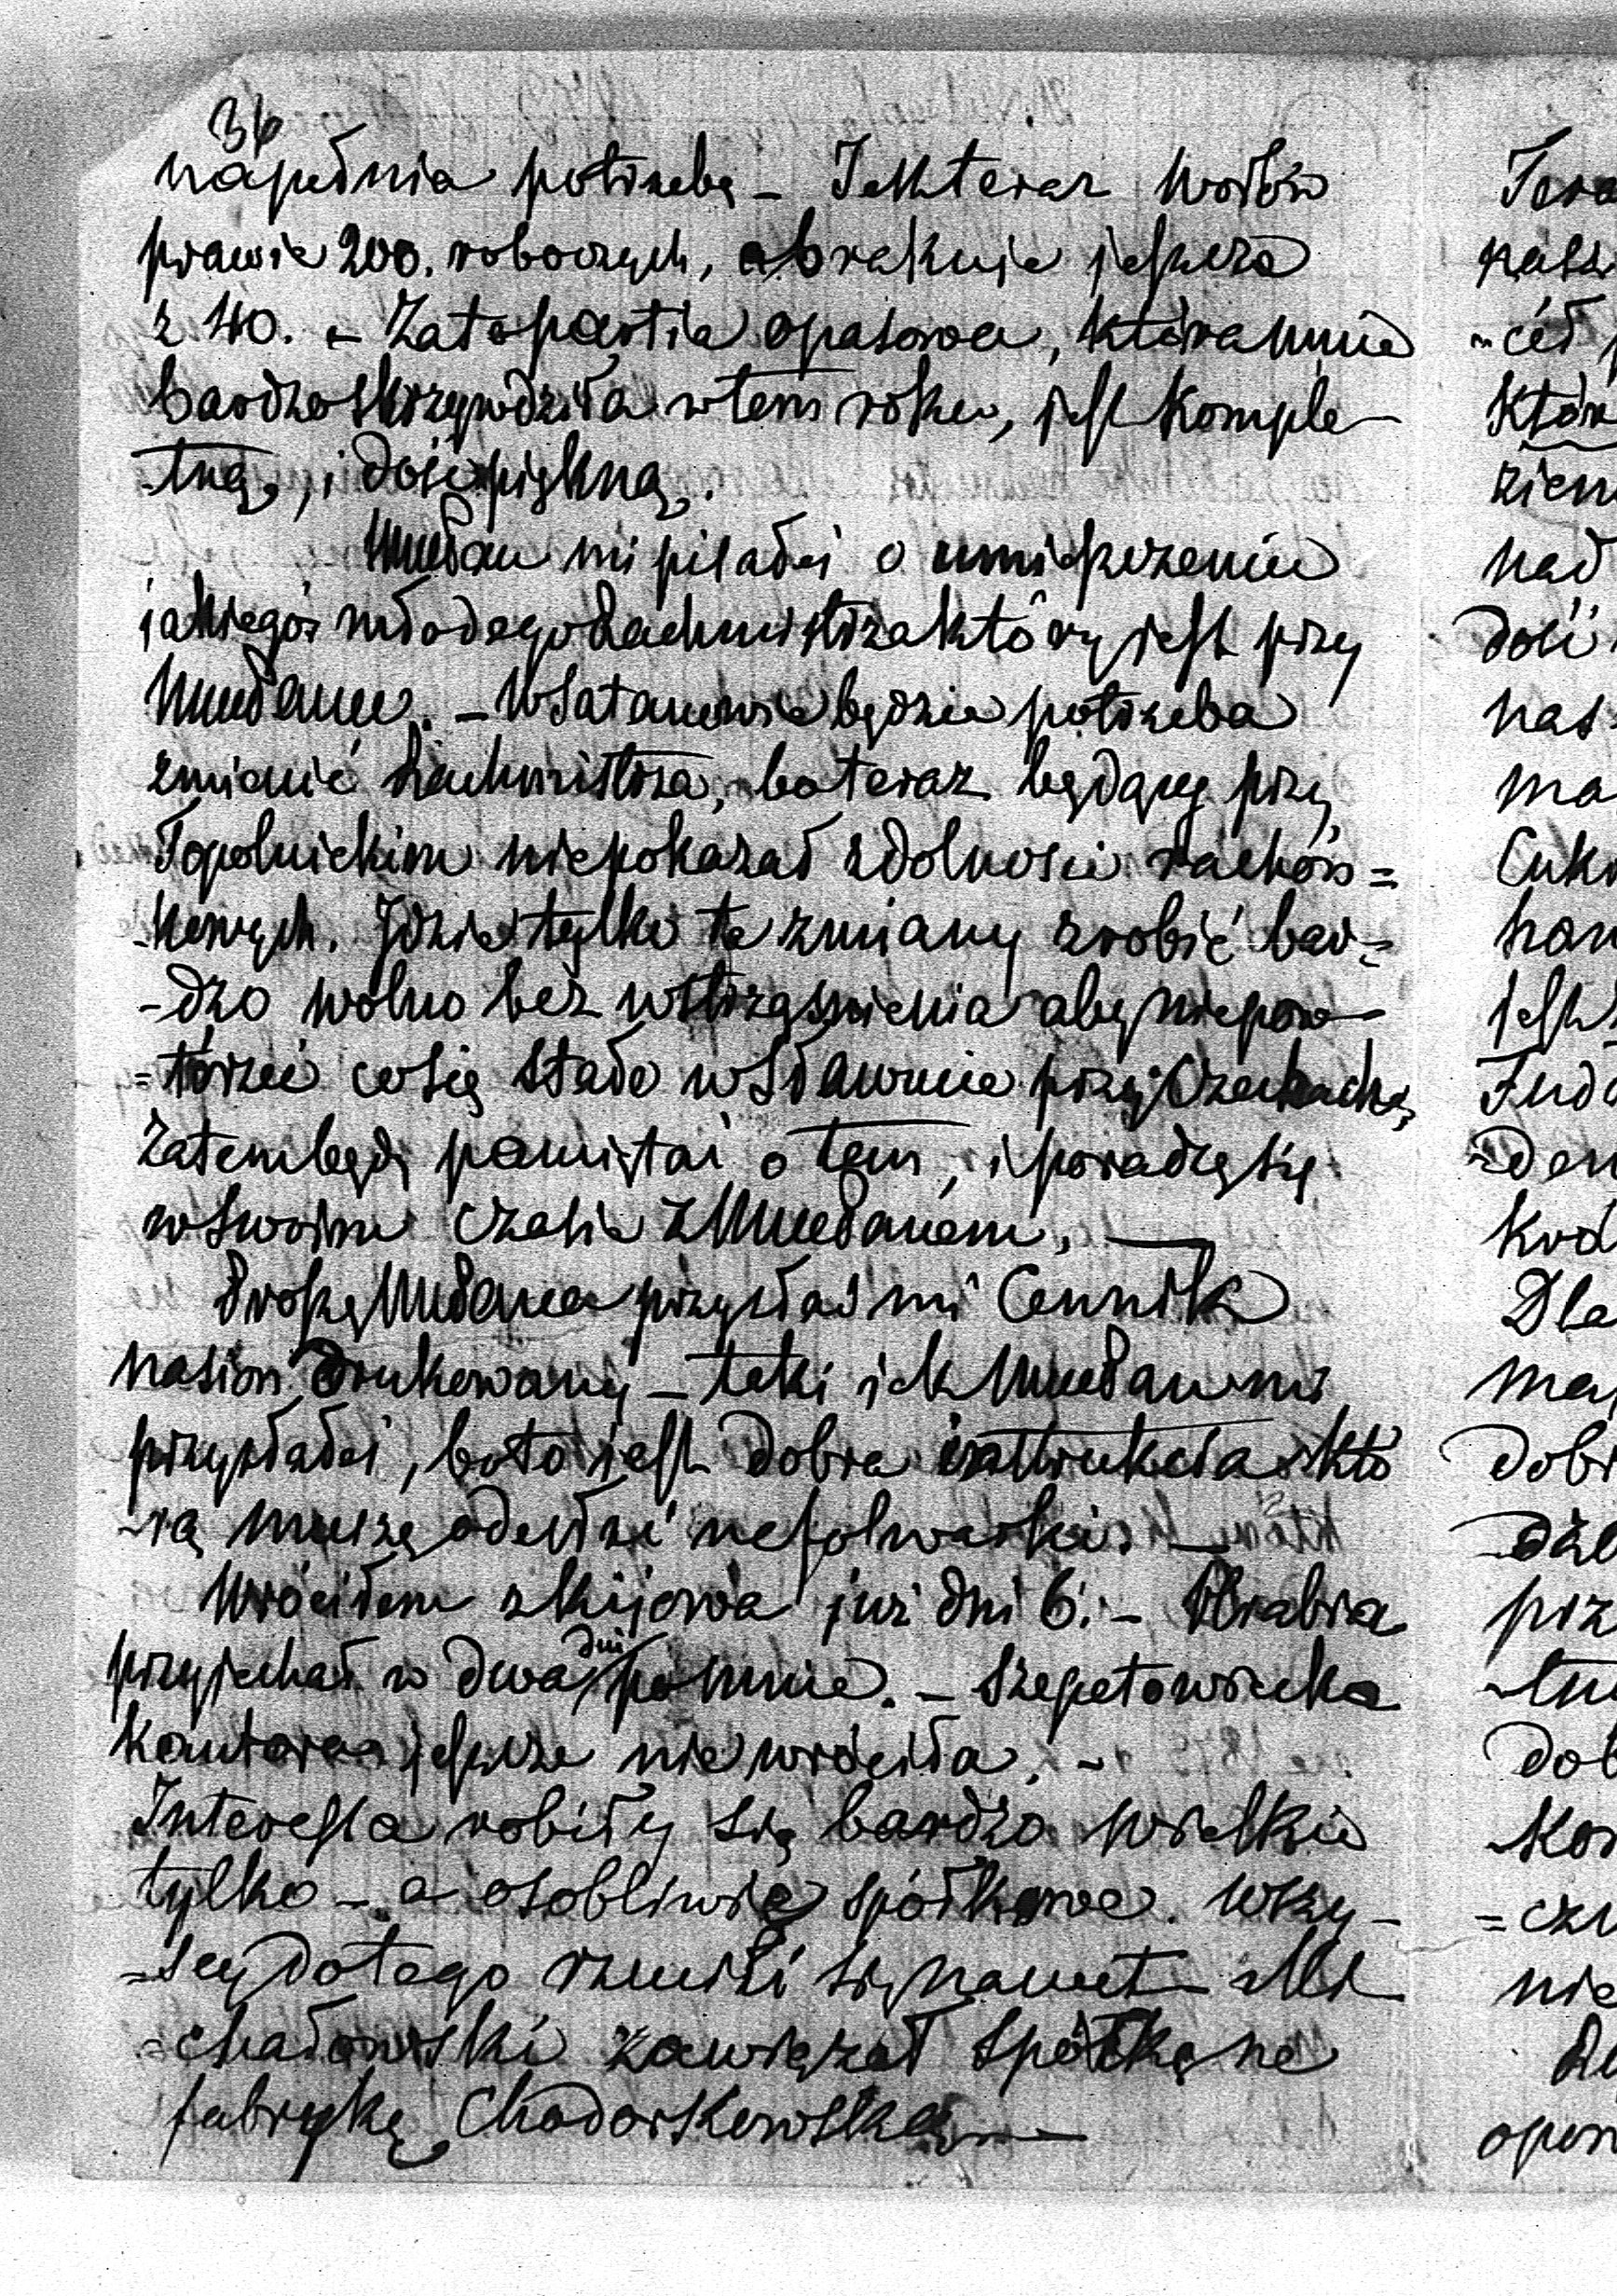 36
napełnia potrzebę – Jest teraz wołów
prawie 200. roboczych, abrakuje jeszcze
z 40. – Zato partia opasowa, która mnie
bardzo skrzywdziła w tem roku, jest komple-
-tną, i dość piękną.
WMuDan mi pisałeś o umieszczeniu
jakiegoś młodego Rachmistrza który jest przy
WMuDanu. – W Satanowie będzie potrzeba
zmienić Rachmistrza, bo teraz będący przy
Topolnickim niepokazał zdolności rachón=
-kowych. Idzie tylko te zmiany zrobić bar=
-dzo wolno bez wstrząsnienia aby niepow-
=tórzić co się stało w Sławucie przy Czechach,
Zatem będę pamiętać o tem, i poradzę się
w swoim czasie z WMuDanem, —
Proszę WMuDana przysłać mi Cennik
nasion drukowany – taki jak WMuDan mi
przysłałeś, bo to jest dobra instrukcia któ
-rą muszę odesłać na folwarki. —
Wróciłem z Kijowa już dni 6. – Hrabia
przyjechał w dwa dni po mnie. – Szepetowiecka
Kantora jeszcze nie wróciła. –
Interessa robiły się bardzo wielkie
tylko – a osobliwie spółkowe. Wszy-
=scy do tego rzucili się nawet Mi
=chałowski zawiązał spółkę na
fabrykę Chodorkowską —
Dla